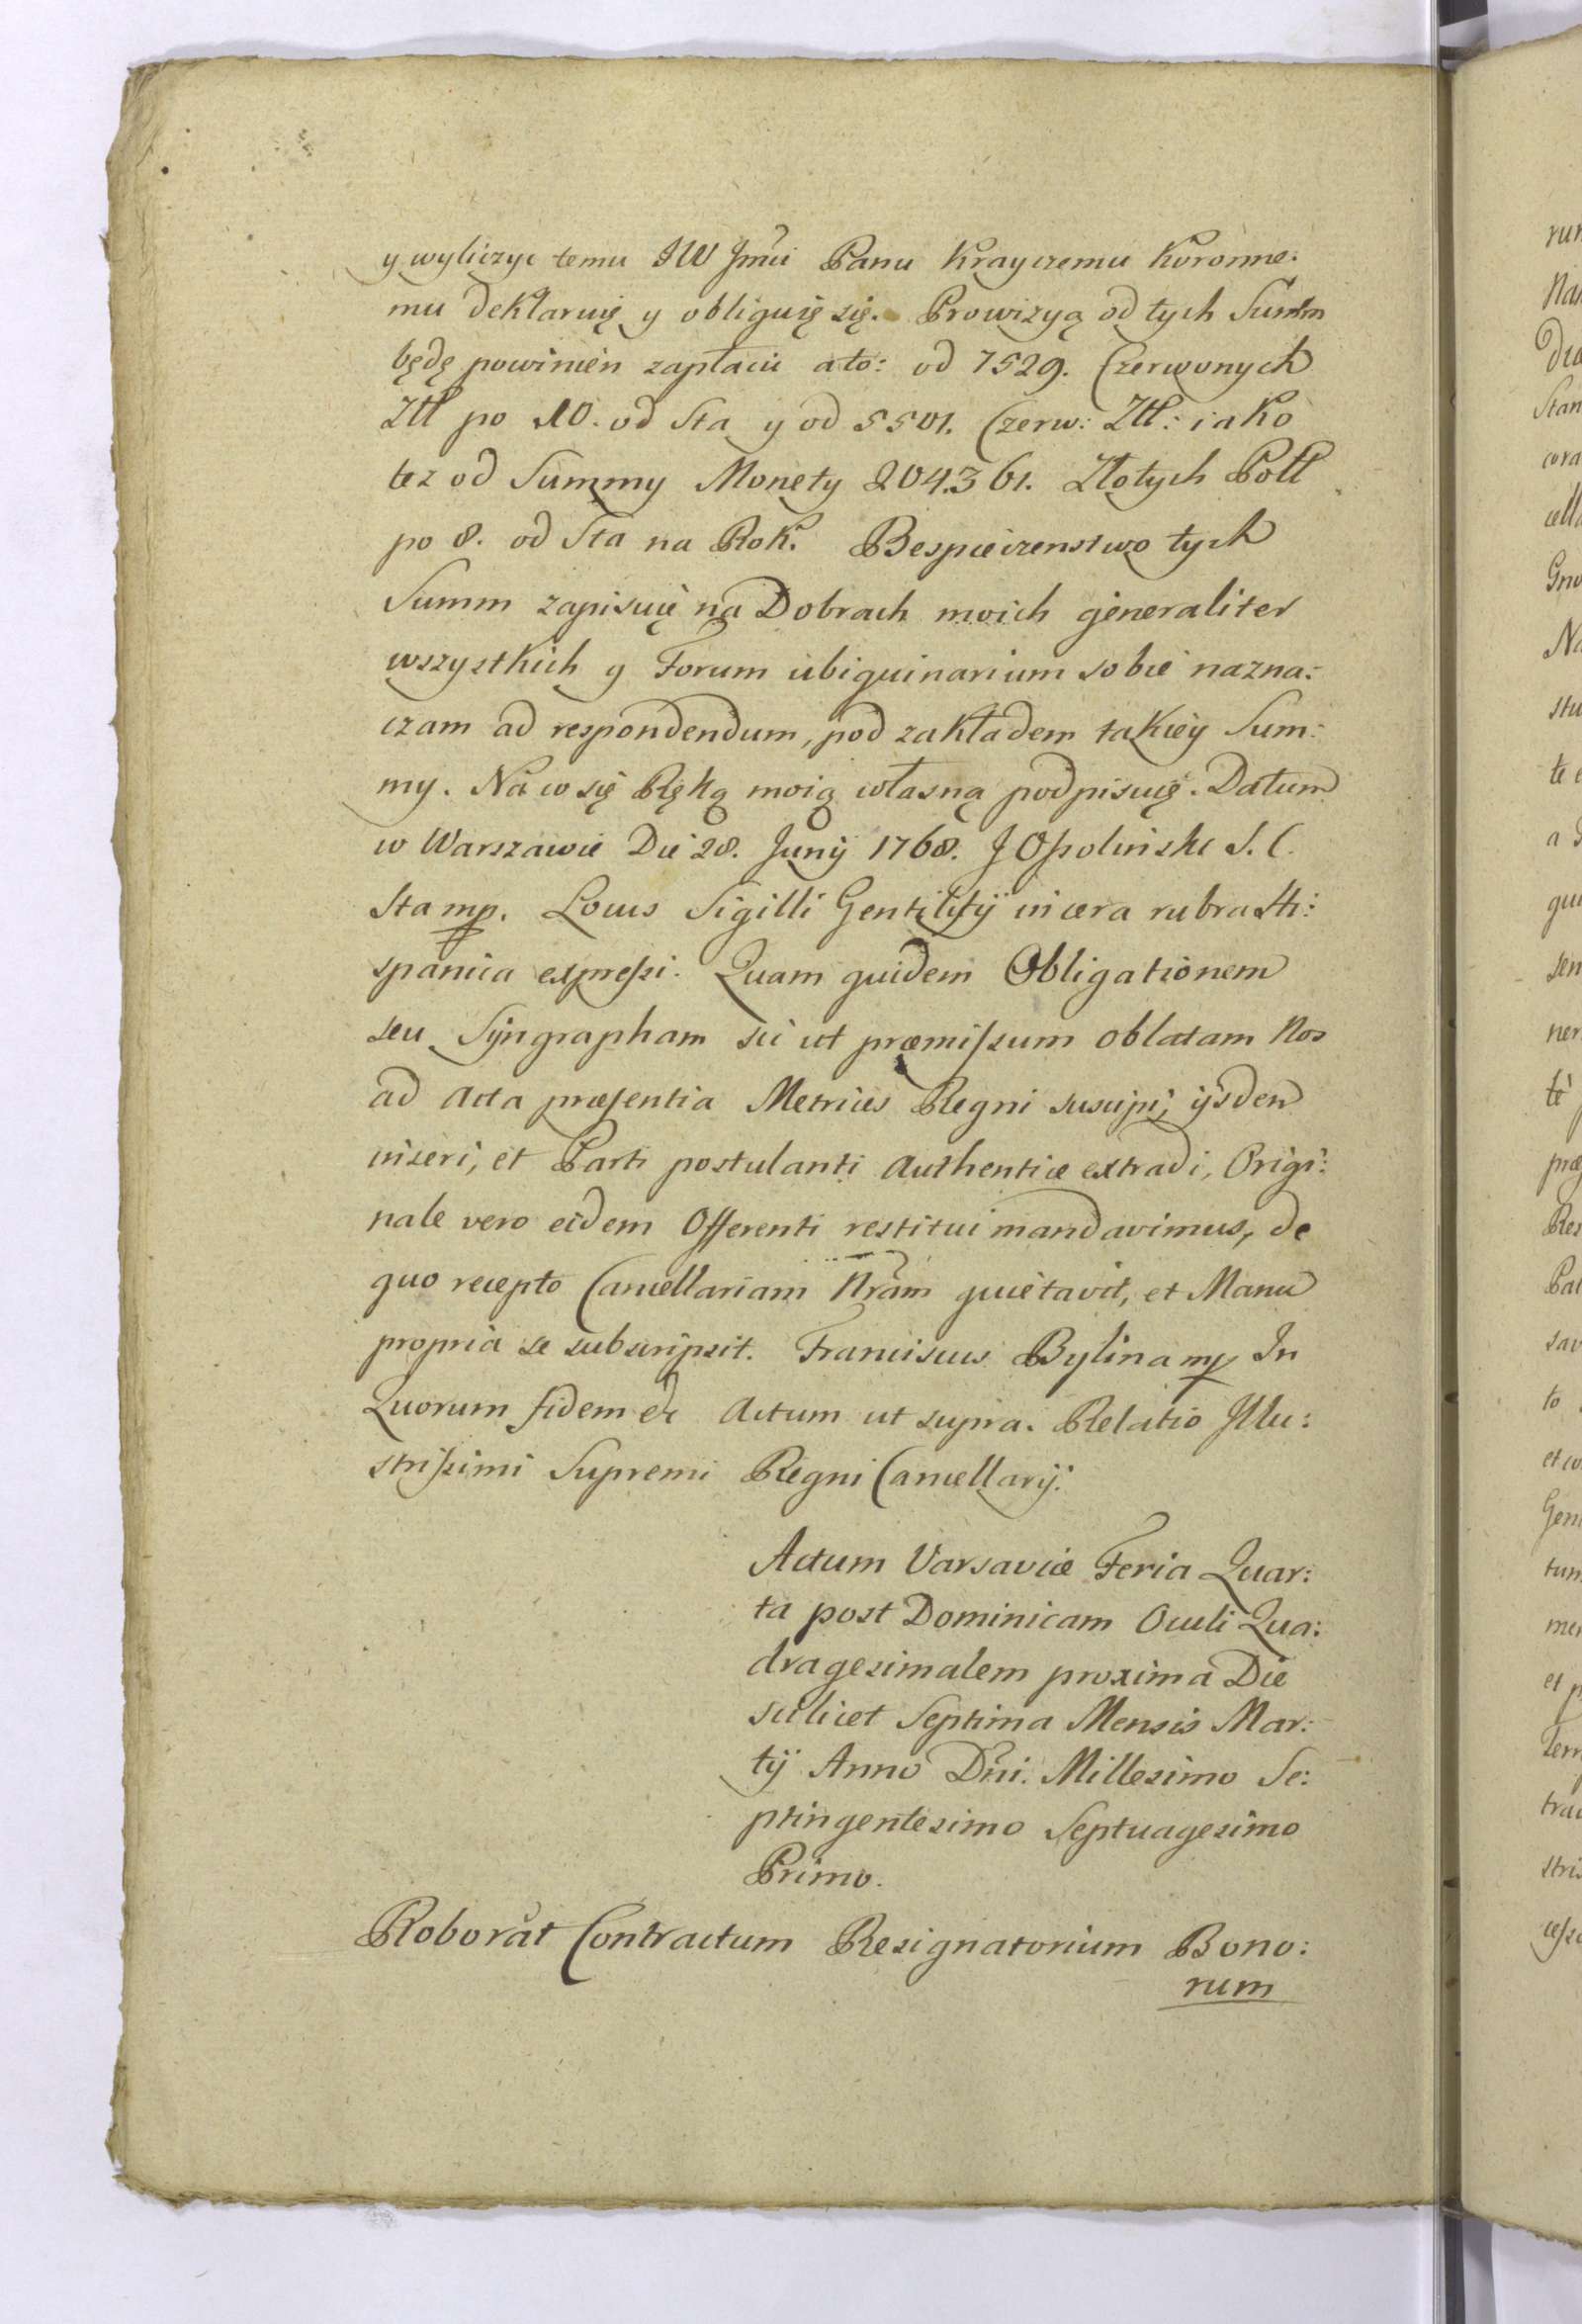 y wyliczyc temu JW Jmci Panu Krayczemu Koronne:
mu deklaruię y obliguię się. Prowizyą od tych Summ
będę powinien zapłacić ato: od 7529. Czerwonych
Ztł po 10. od Sta y od 5501. Czerw: Ztł: iako
tez od Summy Monety 204.361. Złotych Poll
po 8. od Sta na Rok. Bespieczenstwo tych
Summ zapisuię na Dobrach moich generaliter
wszystkich y Forum ubiquinarium sobie nazna:
czam ad respondendum, pod zakładem takiey Sum:
my. Na co się Ręką moią własną podpisuię. Datum
w Warszawie Die 28. Junij 1768. J Opolinski S. C.
Sta mp. Locus Sigilli Gentilitij in cera rubra Hi:
spanica expressi. Quam quidem Obligationem
seu Syngrapham sic ut præmissum oblatam Nos
ad Acta præsentia Metrices Regni suscipi, ijsdem
inseri, et Parti postulanti Authentice extradi, Origi:
nale vero eidem Offerenti restitui mandavimus, de
quo recepto Cancellariam Nram quietavit, et Manu
propria se subscripsit. Franciscus Bylina mp In
Quorum fidem etc Actum ut supra. Relatio Jllu:
strissimi Supremi Regni Cancellarij.
Actum Varsaviæ Feria Quar:
ta post Dominicam Oculi Qua:
dragesimalem proxima Die
scilicet Septima Mensis Mar:
tij Anno Dni. Millesimo Se:
ptingentesimo Septuagesimo
Primo.
Roborat Contractum Resignatorium Bono:
rum